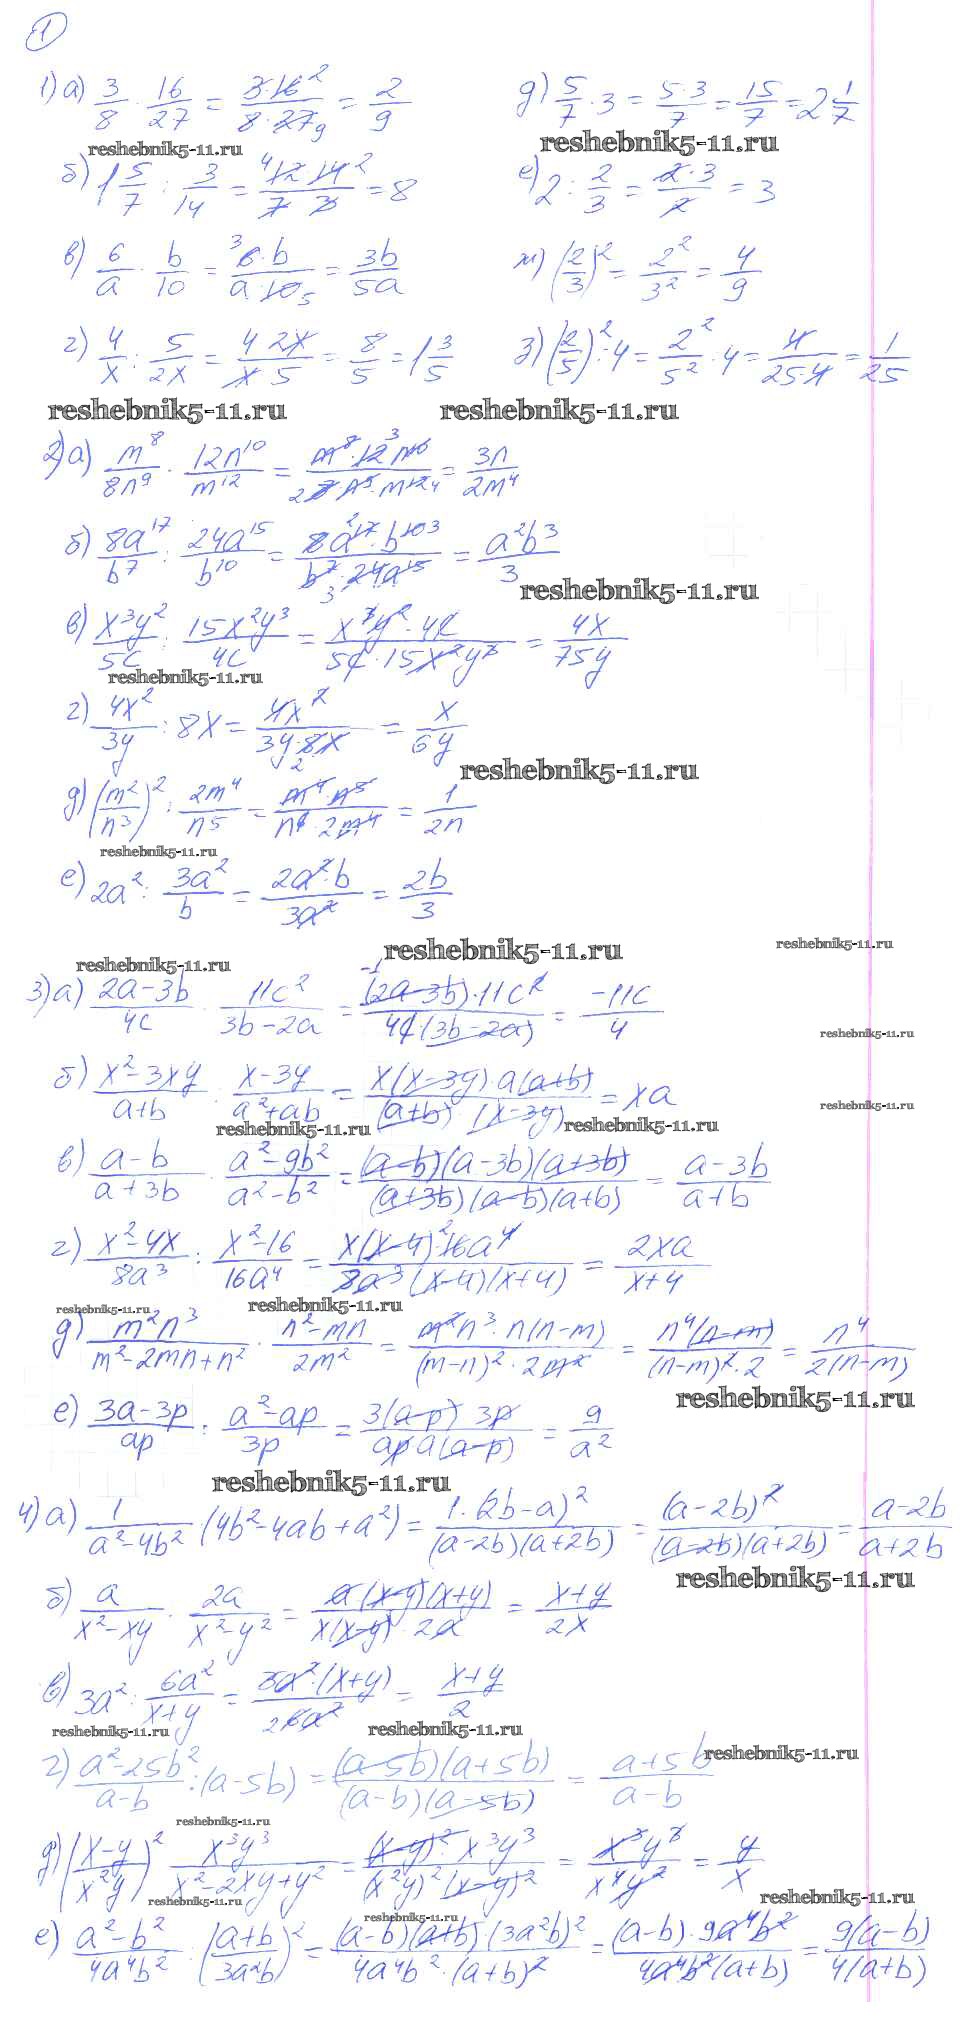 1
1) а) 3/8 · 16/27 = 3·16²/8·27₉ = 2/9   д) 5/7 · 3 = 5·3/7 = 15/7 = 2 1/7
reshebnik5-11.ru   reshebnik5-11.ru
б) 1 5/7 : 3/14 = ⁴12 14²/7 3 = 8   е) 2 : 2/3 = 2·3/2 = 3
в) 6/a · b/10 = ³6·b/a·10₅ = 3b/5a   ж) (2/3)² = 2²/3² = 4/9
г) 4/x : 5/2x = 4 2x/x 5 = 8/5 = 1 3/5   з) (2/5)² : 4 = 2²/5² · 4 = 4/25·4 = 1/25
reshebnik5-11.ru   reshebnik5-11.ru
2) а) m⁸/8n⁹ · 12n¹⁰/m¹² = m⁸·12³n¹⁰/₂8n⁹·m¹²₄ = 3n/2m⁴
б) 8a¹⁷/b⁷ : 24a¹⁵/b¹⁰ = 8a¹⁷²·b¹⁰³/b⁷·₃24a¹⁵ = a²b³/3
reshebnik5-11.ru
в) x³y²/5c : 15x²y³/4c = x³y²·4c/5c·15x²y³ = 4x/75y
reshebnik5-11.ru
г) 4x²/3y : 8x = 4x²/3y·8x₂ = x/6y
reshebnik5-11.ru
д) (m²/n³)² : 2m⁴/n⁵ = m⁴·n⁵/n⁶·2m⁴ = 1/2n
reshebnik5-11.ru
е) 2a² : 3a²/b = 2a²·b/3a² = 2b/3
reshebnik5-11.ru   reshebnik5-11.ru
reshebnik5-11.ru
3) а) 2a-3b/4c · 11c²/3b-2a = ⁻¹(2a-3b)·11c²/4c·(3b-2a) = -11c/4
reshebnik5-11.ru
б) x²-3xy/a+b · x-3y/a²+ab = x(x-3y)·a(a+b)/(a+b) (x-3y) = xa
reshebnik5-11.ru
reshebnik5-11.ru   reshebnik5-11.ru
в) a-b/a+3b · a²-9b²/a²-b² = (a-b)(a-3b)(a+3b)/(a+3b)(a-b)(a+b) = a-3b/a+b
г) x²-4x/8a³ : x²-16/16a⁴ = x(x-4)²·16a⁴/8a³(x-4)(x+4) = 2xa/x+4
reshebnik5-11.ru   reshebnik5-11.ru
д) m²n³/m²-2mn+n² · n²-mn/2m² = m²n³·n(n-m)/(m-n)²·2m² = n⁴(n-m)/(n-m)²·2 = n⁴/2(n-m)
reshebnik5-11.ru
е) 3a-3p/ap : a²-ap/3p = 3(a-p) 3p/ap a(a-p) = 9/a²
reshebnik5-11.ru
4) а) 1/a²-4b² (4b²-4ab+a²) = 1·(2b-a)²/(a-2b)(a+2b) = (a-2b)²/(a-2b)(a+2b) = a-2b/a+2b
reshebnik5-11.ru
б) a/x²-xy · 2a/x²-y² = a(x-y)(x+y)/x(x-y) 2a = x+y/2x
в) 3a² : 6a²/x+y = 3a²·(x+y)/₂6a² = x+y/2
reshebnik5-11.ru   reshebnik5-11.ru
г) a²-25b²/a-b : (a-5b) = (a-5b)(a+5b)/(a-b)(a-5b) = a+5b/a-b
reshebnik5-11.ru
reshebnik5-11.ru
д) (x-y/x²y)² x³y³/x²-2xy+y² = (x-y)²·x³y³/(x²y)²(x-y)² = x³y³/x⁴y² = y/x
reshebnik5-11.ru   reshebnik5-11.ru
reshebnik5-11.ru
е) a²-b²/4a⁴b² : (a+b/3a²b)² = (a-b)(a+b)·(3a²b)²/4a⁴b²·(a+b)² = (a-b)·9a⁴b²/4a⁴b²(a+b) = 9(a-b)/4(a+b)